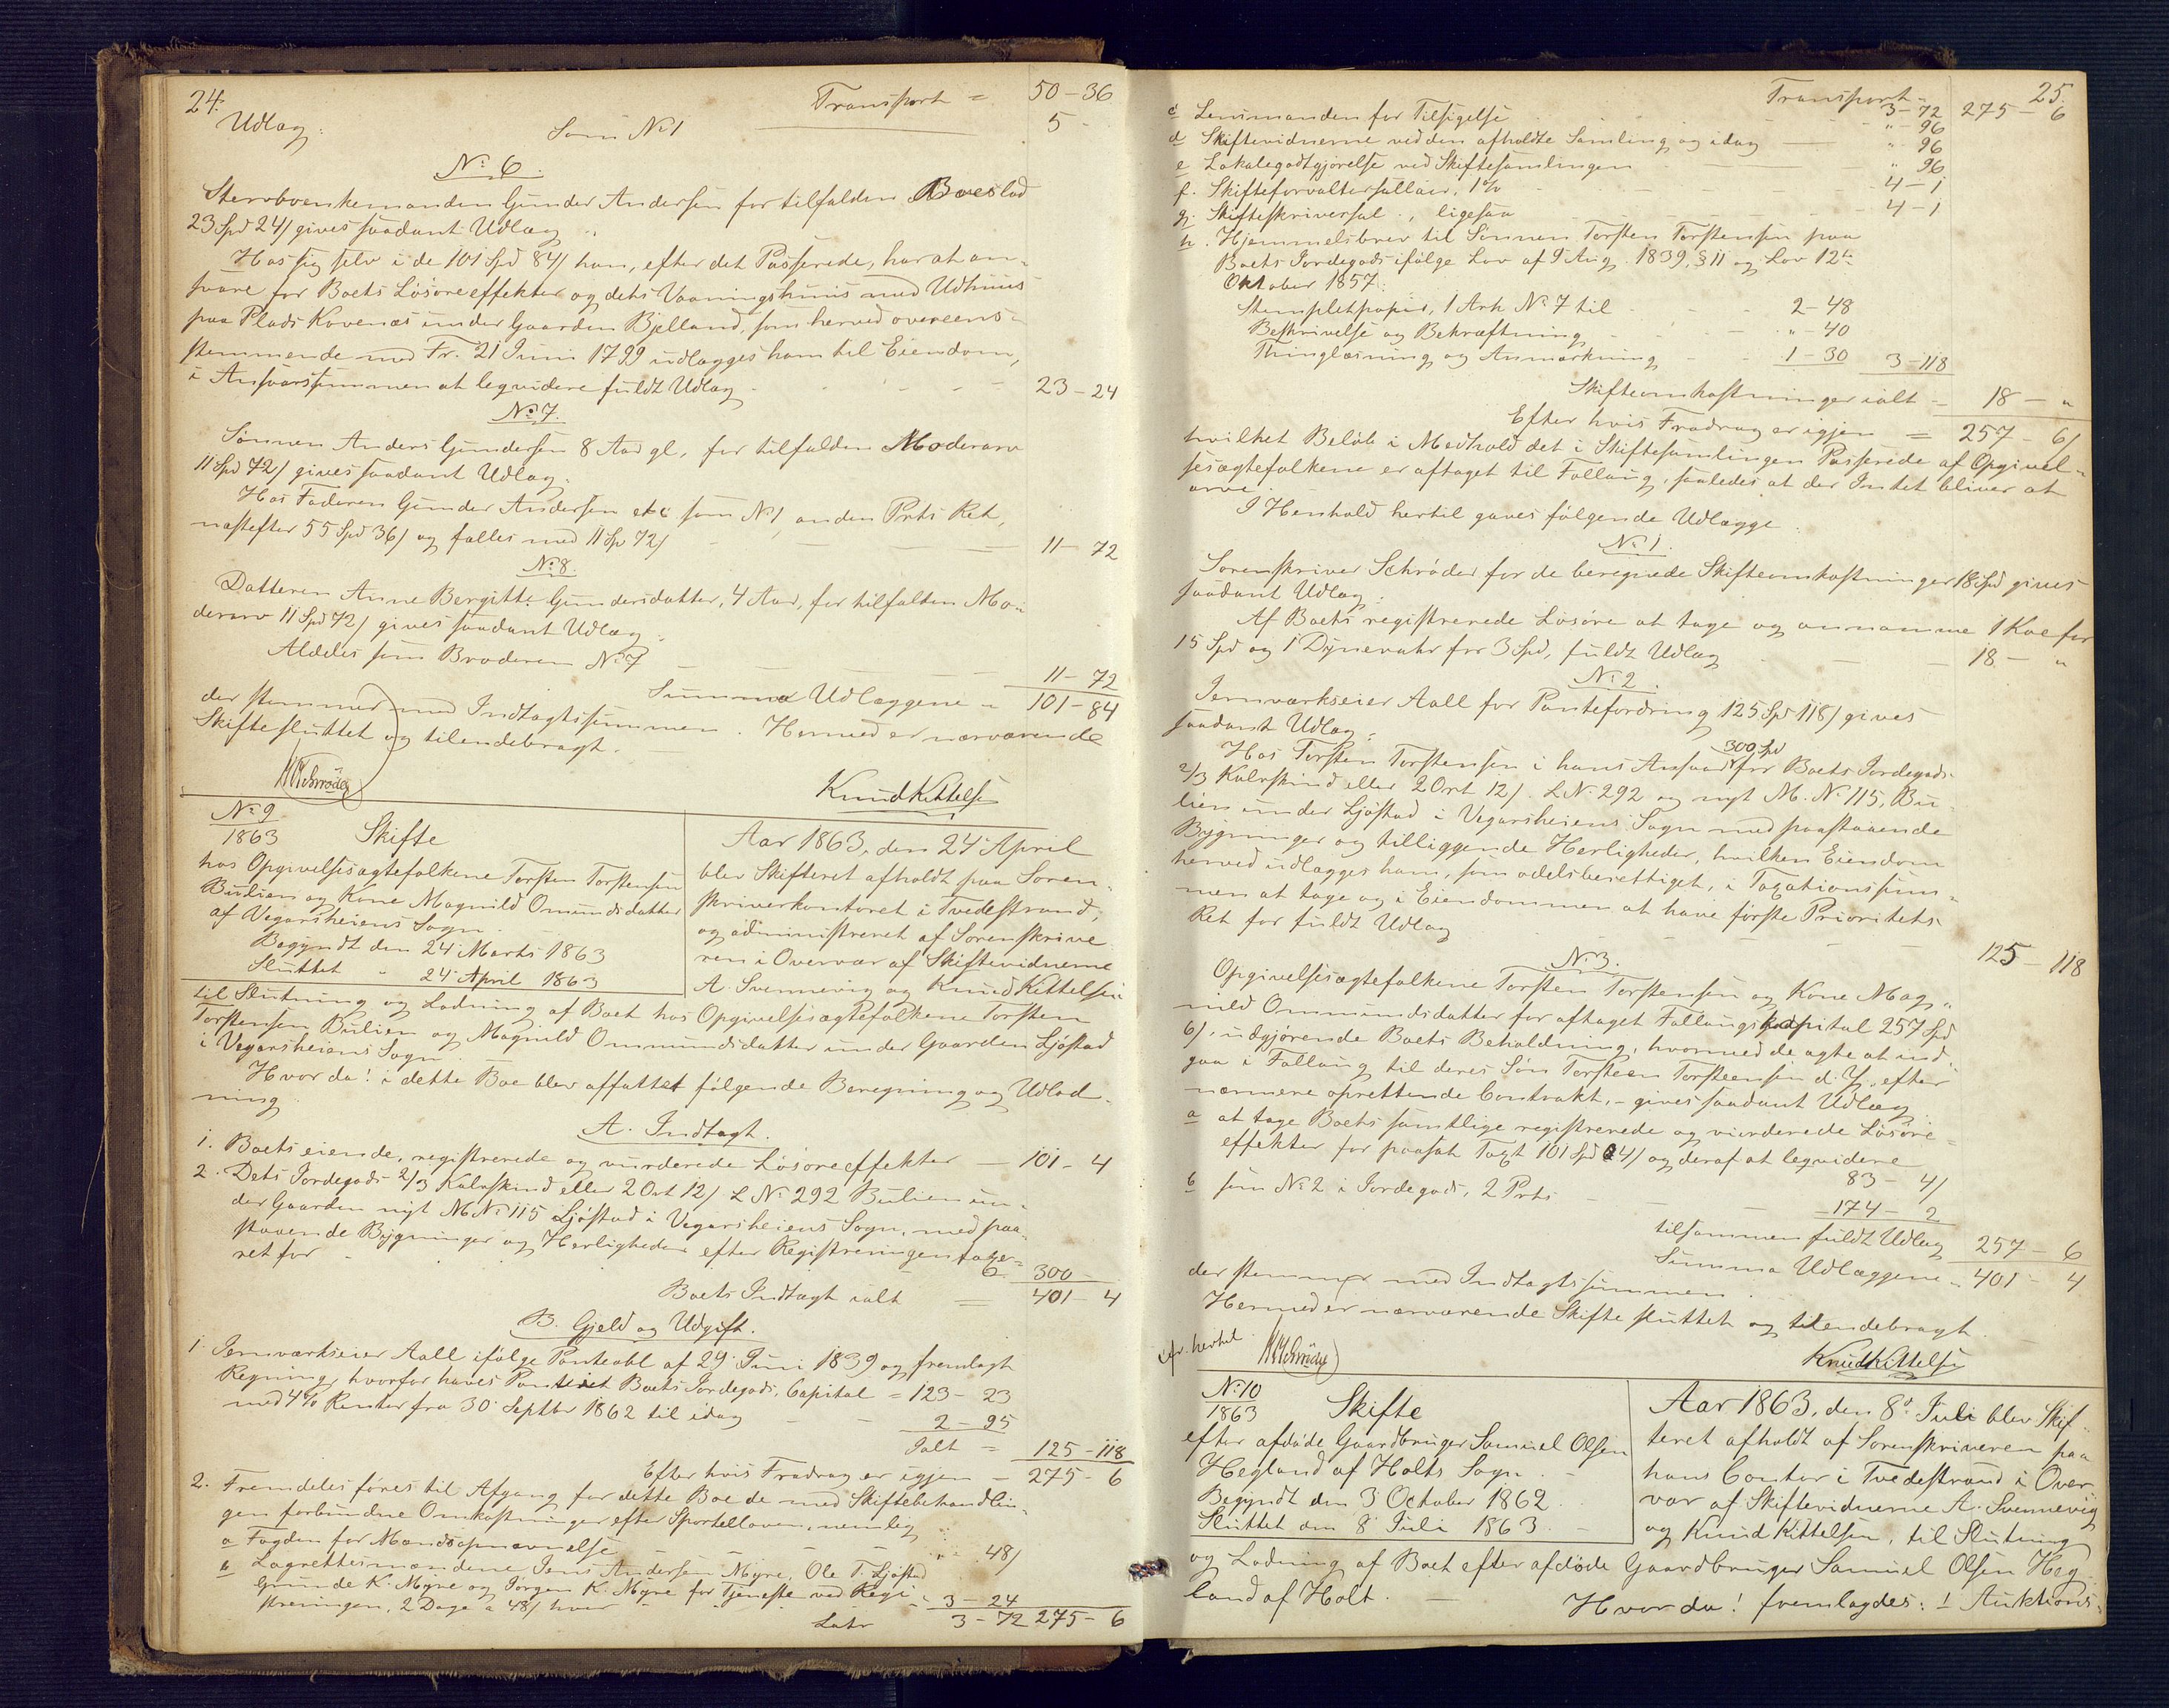 24.
Transport = 50-36
Udlæg: Som No 1 5 -
No 6.
Stervboenkemanden Gunder Andersen for tilfalden Boeslod
23 Spd 24 / gives saadant Udlæg:
Hos sig selv i de 101 Spd 84 / han, efter det Passerede, har at an-
svare for Boets Løsøreeffekter og dets Vaaningshuus med Udhuus
paa Plads Kovenæs under Gaarden Bjelland, som herved overeens-
stemmende med Fr. 21 Juni 1799 udlægges ham til Eiendom,
i Ansvarssummen at leqvidere fuldt Udlæg - 23-24
No 7.
Sønnen Anders Gundersen 8 Aar gl, for tilfalden Moderarv
11 Spd 72 / gives saadant Udlæg:
Hos Faderen Gunder Andersen etc som No 1, anden Prts Ret,
næstefter 55 Spd 36 / og fælles med 11 Sp 72 / 11-72
No 8.
Datteren Anne Bergitte Gundersdatter, 4 Aar, for tilfalden Mo-
derarv 11 Spd 72 / gives saadant Udlæg:
Aldeles som Broderen No 7 11-72
Summa Udlæggene = 101-84
der stemmer med Indtægtssummen. Hermed er nærværende
Skifte sluttet og tilendebragt.
Schrøder
Knud Kittelsen
No 9
1863 Skifte
hos Opgivelsesægtefolkene Torsten Torstensen
Bulien og Kone Magnild Omundsdatter
af Vegarsheiens Sogn.
Begyndt den 24 Marts 1863
Sluttet " 24 April 1863
Aar 1863, den 24 April
blev Skifteret afholdt paa Soren-
skriverkontoret i Tvedestrand,
og administreret af Sorenskrive
ren i Overvær af Skiftevidnerne
A. Svennevig og Knud Kittelsen
til Slutning og Lodning af Boet hos Opgivelsesægtefolkene Torsten
Torstensen Bulien og Magnild Ommundsdatter under Gaarden Ljøstad
i Vegarsheiens Sogn.
Hvor da! i dette Boe blev affattet følgende Beregning og Udlod-
ning
A. Indtægt.
1. Boets eiende, registrerede og vurderede Løsøreeffekter - 101-4
2. Dets Jordegods 2/3 Kalvskind eller 2 Ort 12 / L No 292 Bulien un-
der Gaarden nyt M No 115 Ljøstad i Vegarsheiens Sogn, med paa-
staaende Bygninger og Herligheder efter Registreringen taxe-
ret for 300
Boets Indtægt ialt = 401-4
B. Gjeld og Udgift.
1. Jernværkseier Aall ifølge Panteobl af 29 Juni 1839 og fremlagt
Regning, hvorfor haves Pant i Boets Jordegods, Capital = 123-23
med 4% Renter fra 30 Septbr 1862 til idag 2-95
Ialt = 125-118
Efter hvis Fradrag er igjen - 275-6
2. Fremdeles føres til Afgang for dette Boe de med Skiftebehandlin-
gen forbundne Omkostninger efter Sportelloven, nemlig:
a Fogden for Mandsopnævnelse " 48 /
b Lagrettesmændene Jens Andersen Myre, Ole T. Ljøstad
Gunde K. Myre og Jørgen K. Myre for Tjeneste ved Regi-
streringen, 2 Dage a 48 / hver 3-24
Latr 3-72 275-6
25.
Transport - 3-72 275-6
c Lensmanden for Tilsigelse " - 96
d Skiftevidnerne ved den afholdte Samling og idag " 96
e Lokalegodtgjørelse ved Skiftesamlingen " 96
f. Skifteforvaltersallair, 1% 4-1
g. Skifteskriversal., ligesaa 4-1
h. Hjemmelsbrev til Sønnen Torsten Torstensen paa
Boets Jordegods ifølge Lov af 9 Aug. 1839, § 11 og Lov 12te
Oktober 1857:
Stempletpapir, 1 Ark No 7 til 2-48
Beskrivelse og Bekræftning " - 40
Thinglæsning og Anmærkning 1-30 3-118
Skifteomkostninger ialt - 18 - "
Efter hvis Fradrag er igjen = 257-6 /
hvilket Beløb i Medhold det i Skiftesamlingen Passerede af Opgivel-
sesægtefolkene er aftaget til Follaug, saaledes at der Intet bliver at
arve.
I Henhold hertil gaves følgende Udlægge.
No 1.
Sorenskriver Schrøder for de beregnede Skifteomkostninger 18 Spd gives
saadant Udlæg:
Af Boets registrerede Løsøre at tage og annamme 1 Koe for
15 Spd og 1 Dynevahr for 3 Spd, fuldt Udlæg 18 - "
No 2.
Jernværkseier Aall for Pantefordring 125 Spd 118 / gives
saadant Udlæg:
Hos Torsten Torstensen i hans Ansvar 300 Spd for Boets Jordegods
2/3 Kalvskind eller 2 Ort 12 / L No 292 og nyt M. No 115, Bu-
lien under Ljøstad i Vegarsheiens Sogn med paastaaende
Bygninger og tilliggende Herligheder, hvilken Eiendom
herved udlægges ham, som odelsberettiget, i Taxationssum-
men at tage og i Eiendommen at have første Prioritets
Ret for fuldt Udlæg 125-118
No 3.
Opgivelsesægtefolkene Torsten Torstensen og Kone Mag-
nild Ommundsdatter for aftaget Follaugskapital 257 Spd
6 /, udgjørende Boets Beholdning, hvormed de agte at ind-
gaa i Follaug til deres Søn Torsteen Torsteensen d: Y, efter
nærmere oprettende Contrakt, - gives saadant Udlæg
a at tage Boets samtlige registrerede og vurderede Løsøre-
effekter for paasat Taxt 101 Spd 4 / og deraf at leqvidere
83- 4 /
b som No 2 i Jordegods, 2 Prts 174-2
tilsammen fuldt Udlæg 257-6
Summa Udlæggene = 401-4
der stemmer med Indtægtssummen.
Hermed er nærværende Skifte sluttet og tilendebragt.
cfr. hertil
Schrøder
Knud Kittelsen
No 10
1863 Skifte
efter afdøde Gaardbruger Samuel Olsen
Hegland af Holts Sogn.
Begyndt den 3 October 1862.
Sluttet den 8 Juli 1863.
Aar 1863, den 8de Juli blev Skif-
teret afholdt af Sorenskriveren paa
hans Contor i Tvedestrand i Over-
vær af Skiftevidnerne A. Svennevig
og Knud Kittelsen, til Slutning
og Lodning af Boet efter afdøde Gaardbruger Samuel Olsen Heg-
land af Holt.
Hvor da! fremlagdes: 1 Auktions-